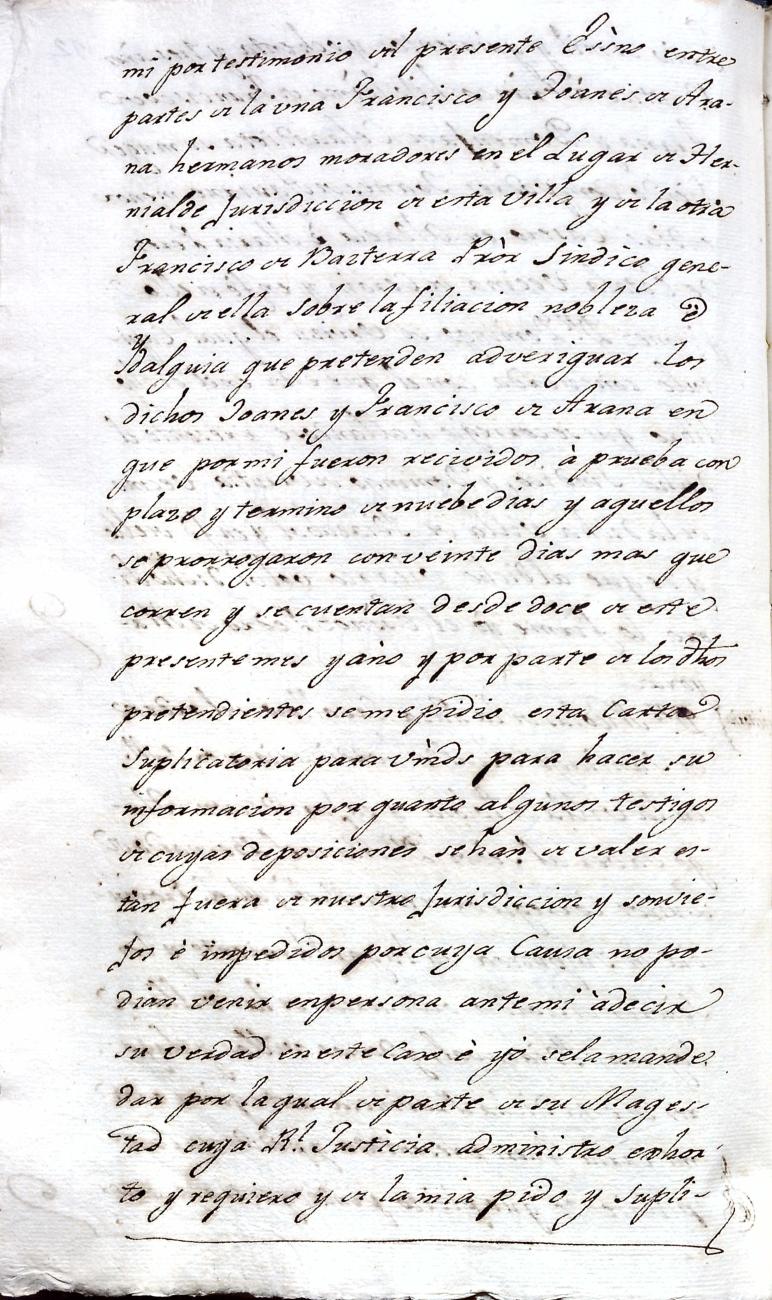 mi por testimonio del presente Essno entre
partes de la vna Francisco y Joanes de Ara-
na hermanos moradores en el Lugar de Her-
nialde Jurisdiccion de esta villa y de la otra
Francisco de Bazterra Prôr Sindico gene-
ral de ella sobre la filiacion nobleza é
ydalguia que pretenden adveriguar los
dichos Joanes y Francisco de Arana en
que por mi fueron recividos à prueba con
plazo y termino de nuebe dias y aquellos
se prorrogaron con veinte dias mas que
corren y se cuentan desde doce de este
presente mes y año y por parte de los dhos
pretendientes se me pidio esta Carta
Suplicatoria para Vmds para hacer su
informacion por quanto algunos testigos
de cuyas deposiciones se han de valer es-
tàn fuera de nuestro Jurisdiccion y son vie-
jos è impedidos por cuya Causa no po-
dian venir en persona ante mi à decir
su verdad en este caso è yo se la mande
dar por la qual de parte de su Mages-
tad cuya Rl. Justicia administro exhor-
to y requiero y de la mia pido y supli-